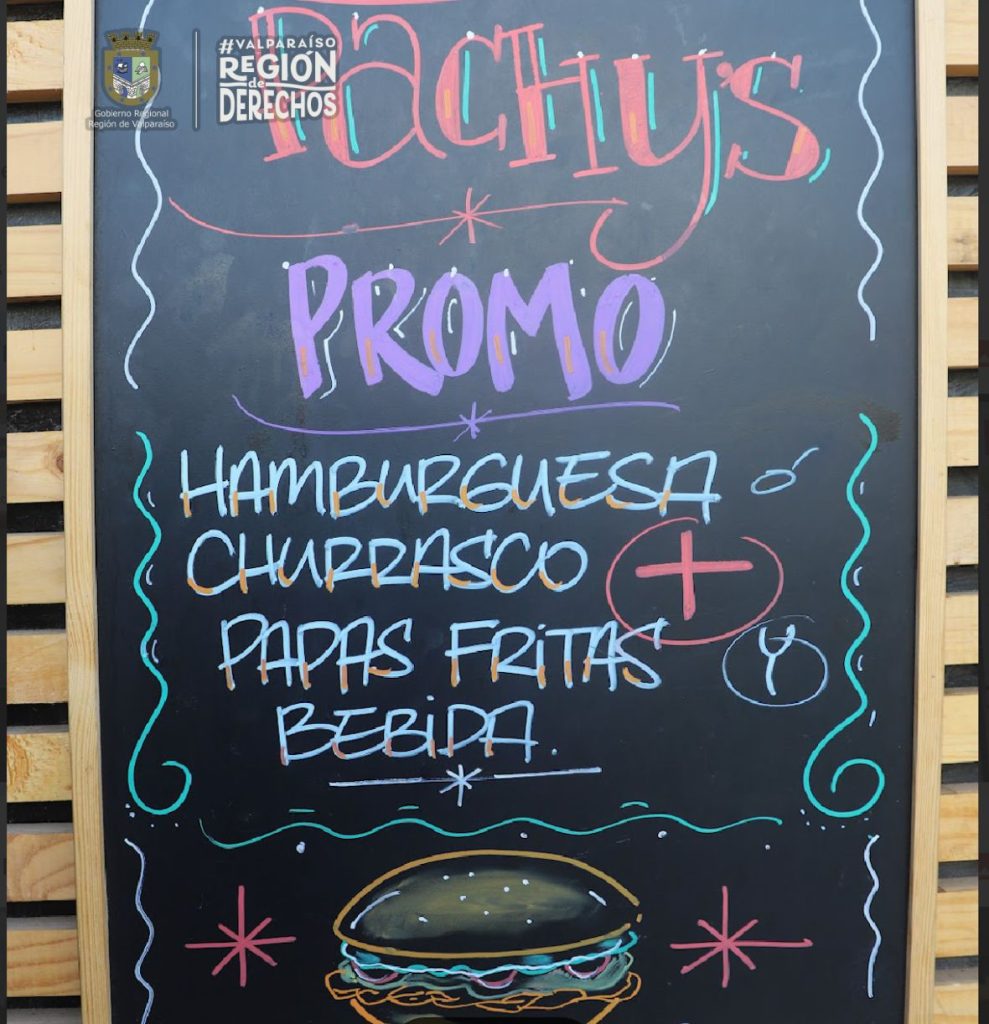 Gobierno Regional
Región de Valparaíso
#VALPARAÍSO
REGIÓN
de
DERECHOS
PACHY'S
PROMO
HAMBURGUESA ó
CHURRASCO +
PAPAS FRITAS Y
BEBIDA.